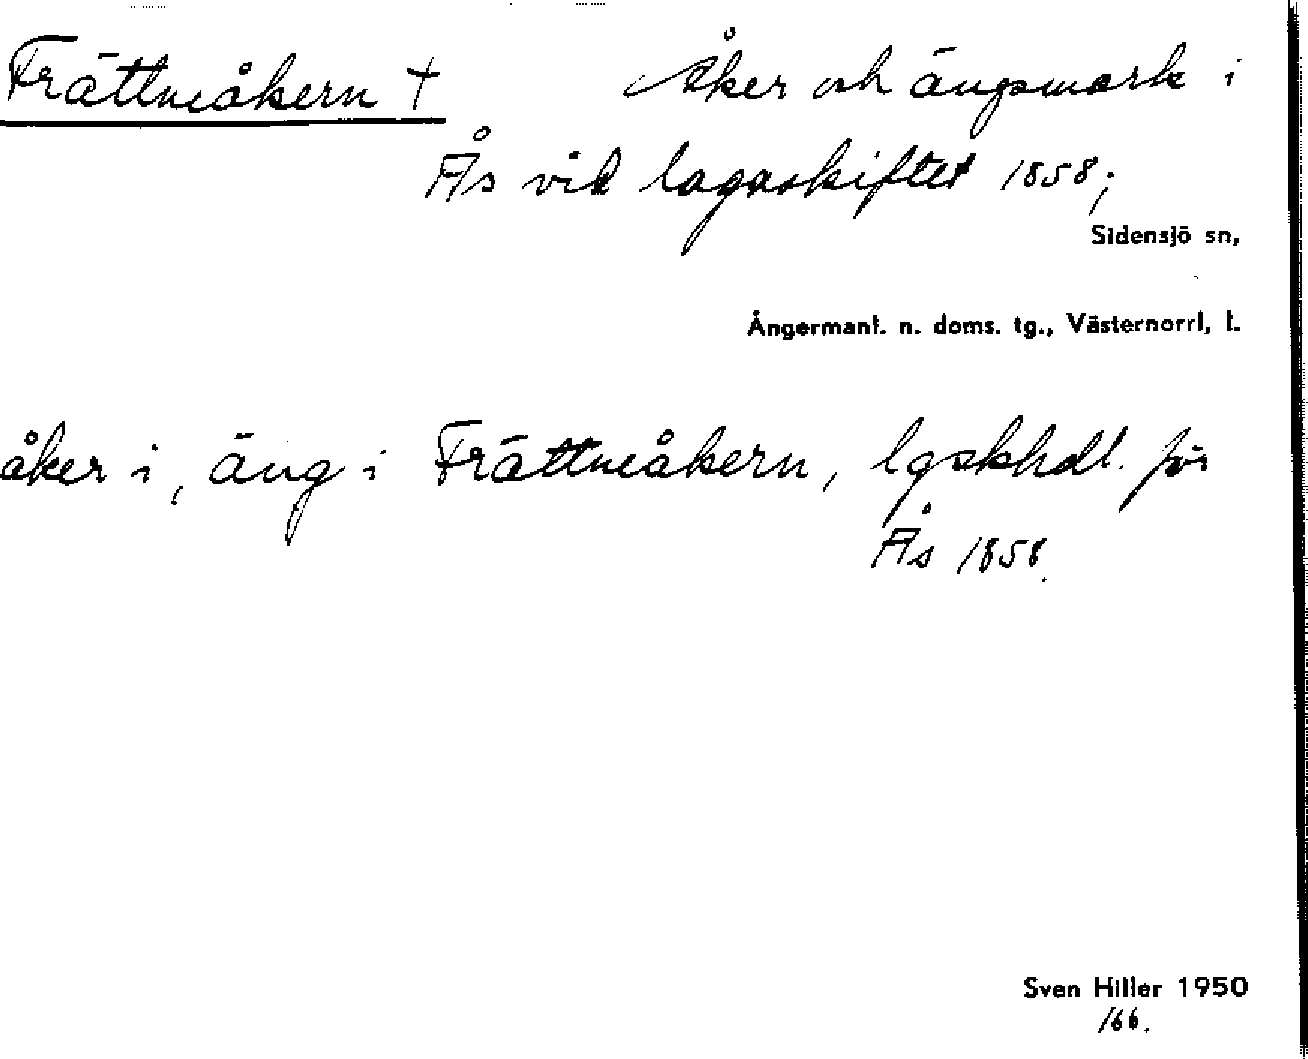 Frättneåkern † Åker och ängsmark i
Ås vid lagaskiftet 1858;
Sidensjö sn,
Ångermanl. n. doms. tg., Västernorrl, l.
åker i, äng i Frättneåkern, lgskhdl. för
Ås 1858.
Sven Hiller 1950
/66.